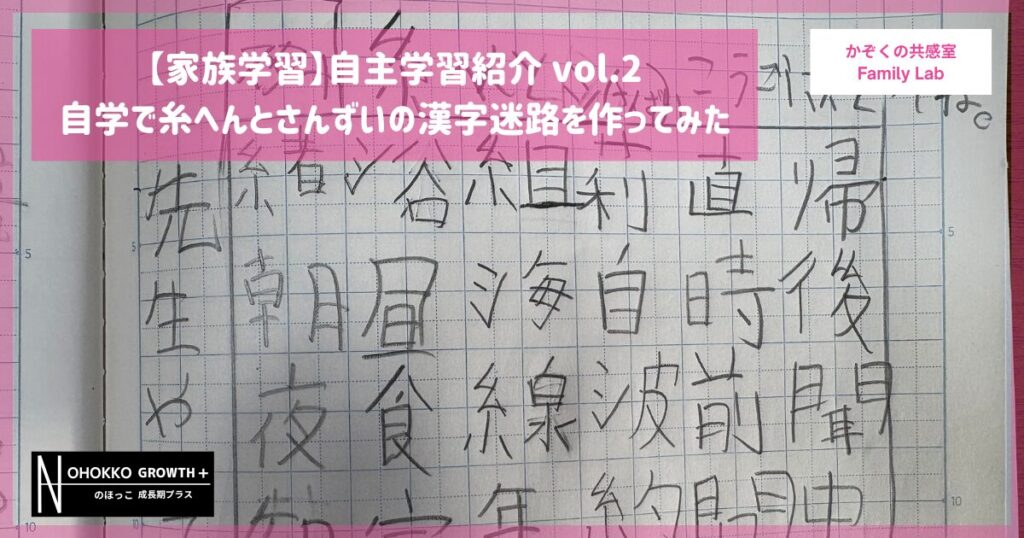 【家族学習】自主学習紹介 vol.2
自学で糸へんとさんずいの漢字迷路を作ってみた
かぞくの共感室
Family Lab
先生や
緒浴組利直帰
朝昼海自時後
夜食線波前聞
年約間中
5
5
5
10
10
NOHOKKO GROWTH+
のほっこ 成長期プラス